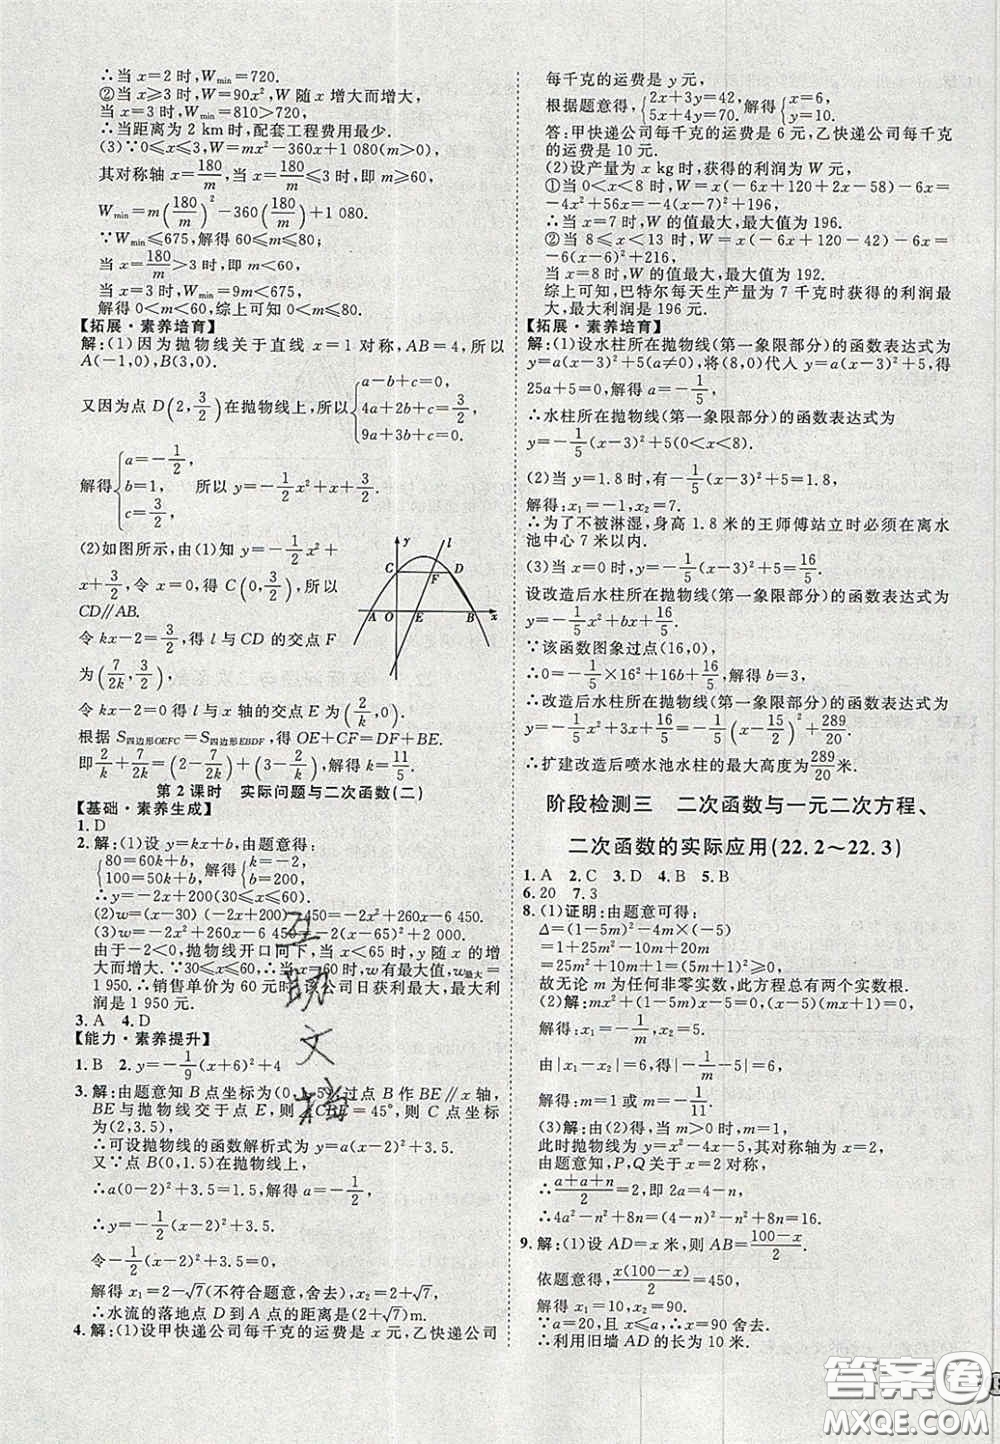 ∴当 x=2 时,Wmin=720.
②当 x≥3 时,W=90x²,W 随 x 增大而增大,
∴当 x=3 时,Wmin=810>720.
∴当距离为 2 km 时,配套工程费用最少.
(3)∵0≤x≤3,∴W=mx²-360x+1 080(m>0),
其对称轴 x=180/m,当 x=180/m≤3 时,即 m≥60,
Wmin=m(180/m)²-360(180/m)+1 080.
∵Wmin≤675,解得 60≤m≤80;
当 x=180/m>3 时,即 m<60,
当 x=3 时,Wmin=9m<675,
解得 0<m<60,综上可知 0<m≤80.
【拓展·素养培育】
解:(1)因为抛物线关于直线 x=1 对称,AB=4,所以
A(-1,0),B(3,0).
又因为点 D(2,3/2)在抛物线上,所以{a-b+c=0, 4a+2b+c=3/2, 9a+3b+c=0.
解得{a=-1/2, b=1, c=3/2, 所以 y=-1/2x²+x+3/2.
(2)如图所示,由(1)知 y=-1/2x²+
x+3/2,令 x=0,得 C(0,3/2),所以
CD∥AB.
令 kx-2=3/2,得 l 与 CD 的交点 F
为(7/2k,3/2),
令 kx-2=0 得 l 与 x 轴的交点 E 为(2/k,0).
根据 S四边形OEFC=S四边形EBDF,得 OE+CF=DF+BE.
即2/k+7/2k=(3-2/k)+(2-7/2k),解得 k=11/5.
y l C F D A O E B x
第 2 课时 实际问题与二次函数(二)
【基础·素养生成】
1. D
2. 解:(1)设 y=kx+b,根据题意得
{80=60k+b, 100=50k+b, 解得{k=-2, b=200.
∴y=-2x+200(30≤x≤60).
(2)w=(x-30)(-2x+200)-450=-2x²+260x-6 450.
(3)w=-2x²+260x-6 450=-2(x-65)²+2 000.
由于-2<0,抛物线开口向下,当 x<65 时,y 随 x 的增
大而增大.∵30≤x≤60,∴当 x=60 时,w有最大值,w最大=
1 950.∴销售单价为 60 元时,该公司日获利最大,最大利
润是 1 950 元.
3. A 4. D
【能力·素养提升】
1. B 2. y=-1/9(x+6)²+4
3. 解:由题意知 B 点坐标为(0,1.5),过点 B 作 BE∥x 轴,
BE与抛物线交于点 E,则∠CBE=45°,则 C 点坐标
为(2,3.5),
∴可设抛物线的函数解析式为 y=a(x-2)²+3.5.
又∵点 B(0,1.5)在抛物线上,
∴a(0-2)²+3.5=1.5,解得 a=-1/2,
∴y=-1/2(x-2)²+3.5.
令-1/2(x-2)²+3.5=0,
解得 x=2-√7(不符合题意,舍去),x=2+√7,
∴水流的落地点 D 到 A 点的距离是(2+√7)m.
4. 解:(1)设甲快递公司每千克的运费是 x 元,乙快递公司
每千克的运费是 y 元,
根据题意得{2x+3y=42, 5x+4y=70, 解得{x=6, y=10.
答:甲快递公司每千克的运费是 6 元,乙快递公司每千克
的运费是 10 元.
(2)设产量为 x kg 时,获得的利润为 W 元,
①当 0<x<8 时,W=x(-6x+120+2x-58)-6x=
-4x²+56x=-4(x-7)²+196,
∴当 x=7 时,W 的值最大,最大值为 196.
②当 8≤x<13 时,W=x(-6x+120-42)-6x=
-6(x-6)²+216,
当 x=8 时,W 的值最大,最大值为 192.
综上可知,巴特尔每天生产量为 7 千克时获得的利润最
大,最大利润是 196 元.
【拓展·素养培育】
解:(1)设水柱所在抛物线(第一象限部分)的函数表达式为
y=a(x-3)²+5(a≠0),将(8,0)代入 y=a(x-3)²+5,得
25a+5=0,解得 a=-1/5,
∴水柱所在抛物线(第一象限部分)的函数表达式为
y=-1/5(x-3)²+5(0<x<8).
(2)当 y=1.8 时,有-1/5(x-3)²+5=1.8,
解得:x₁=-1,x₂=7,
∴为了不被淋湿,身高 1.8 米的王师傅站立时必须在离水
池中心 7 米以内.
(3)当 x=0 时,y=-1/5(x-3)²+5=16/5.
设改造后水柱所在抛物线(第一象限部分)的函数表达式为
y=-1/5x²+bx+16/5,
∵该函数图象过点(16,0),
∴0=-1/5×16²+16b+16/5,解得 b=3,
∴改造后水柱所在抛物线(第一象限部分)的函数表达式为
y=-1/5x²+3x+16/5=-1/5(x-15/2)²+289/20.
∴扩建改造后喷水池水柱的最大高度为289/20米.
阶段检测三 二次函数与一元二次方程、
二次函数的实际应用(22.2～22.3)
1. A 2. C 3. D 4. B 5. B
6. 20 7. 3
8. (1)证明:由题意可得:
Δ=(1-5m)²-4m×(-5)
=1+25m²-10m+20m
=25m²+10m+1=(5m+1)²≥0,
故无论 m 为任何非零实数,此方程总有两个实数根.
(2)解:mx²+(1-5m)x-5=0,(x-5)(mx+1)=0,
解得:x₁=-1/m,x₂=5,
由|x₁-x₂|=6,得|-1/m-5|=6,
解得:m=1 或 m=-1/11.
(3)解:由(2)得,当 m>0 时,m=1,
此时抛物线为 y=x²-4x-5,其对称轴为 x=2,
由题意知,P,Q 关于 x=2 对称,
∴(a+a+n)/2=2,即 2a=4-n,
∴4a²-n²+8n=(4-n)²-n²+8n=16.
9. 解:(1)设 AD=x 米,则 AB=(100-x)/2.
依题意得,x(100-x)/2=450,
解得 x₁=10,x₂=90.
∵a=20,且 x≤a,∴x=90 舍去.
∴利用旧墙 AD 的长为 10 米.
互助文档
答案圈
MXQE.COM